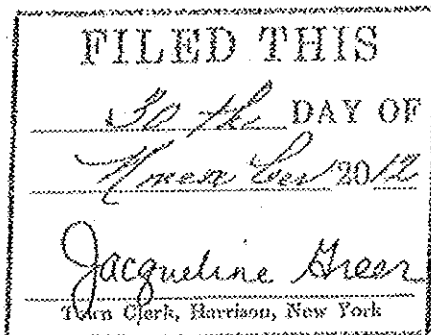 FILED THIS
30 th DAY OF
November 2012
Jacqueline Greer
Town Clerk, Harrison, New York